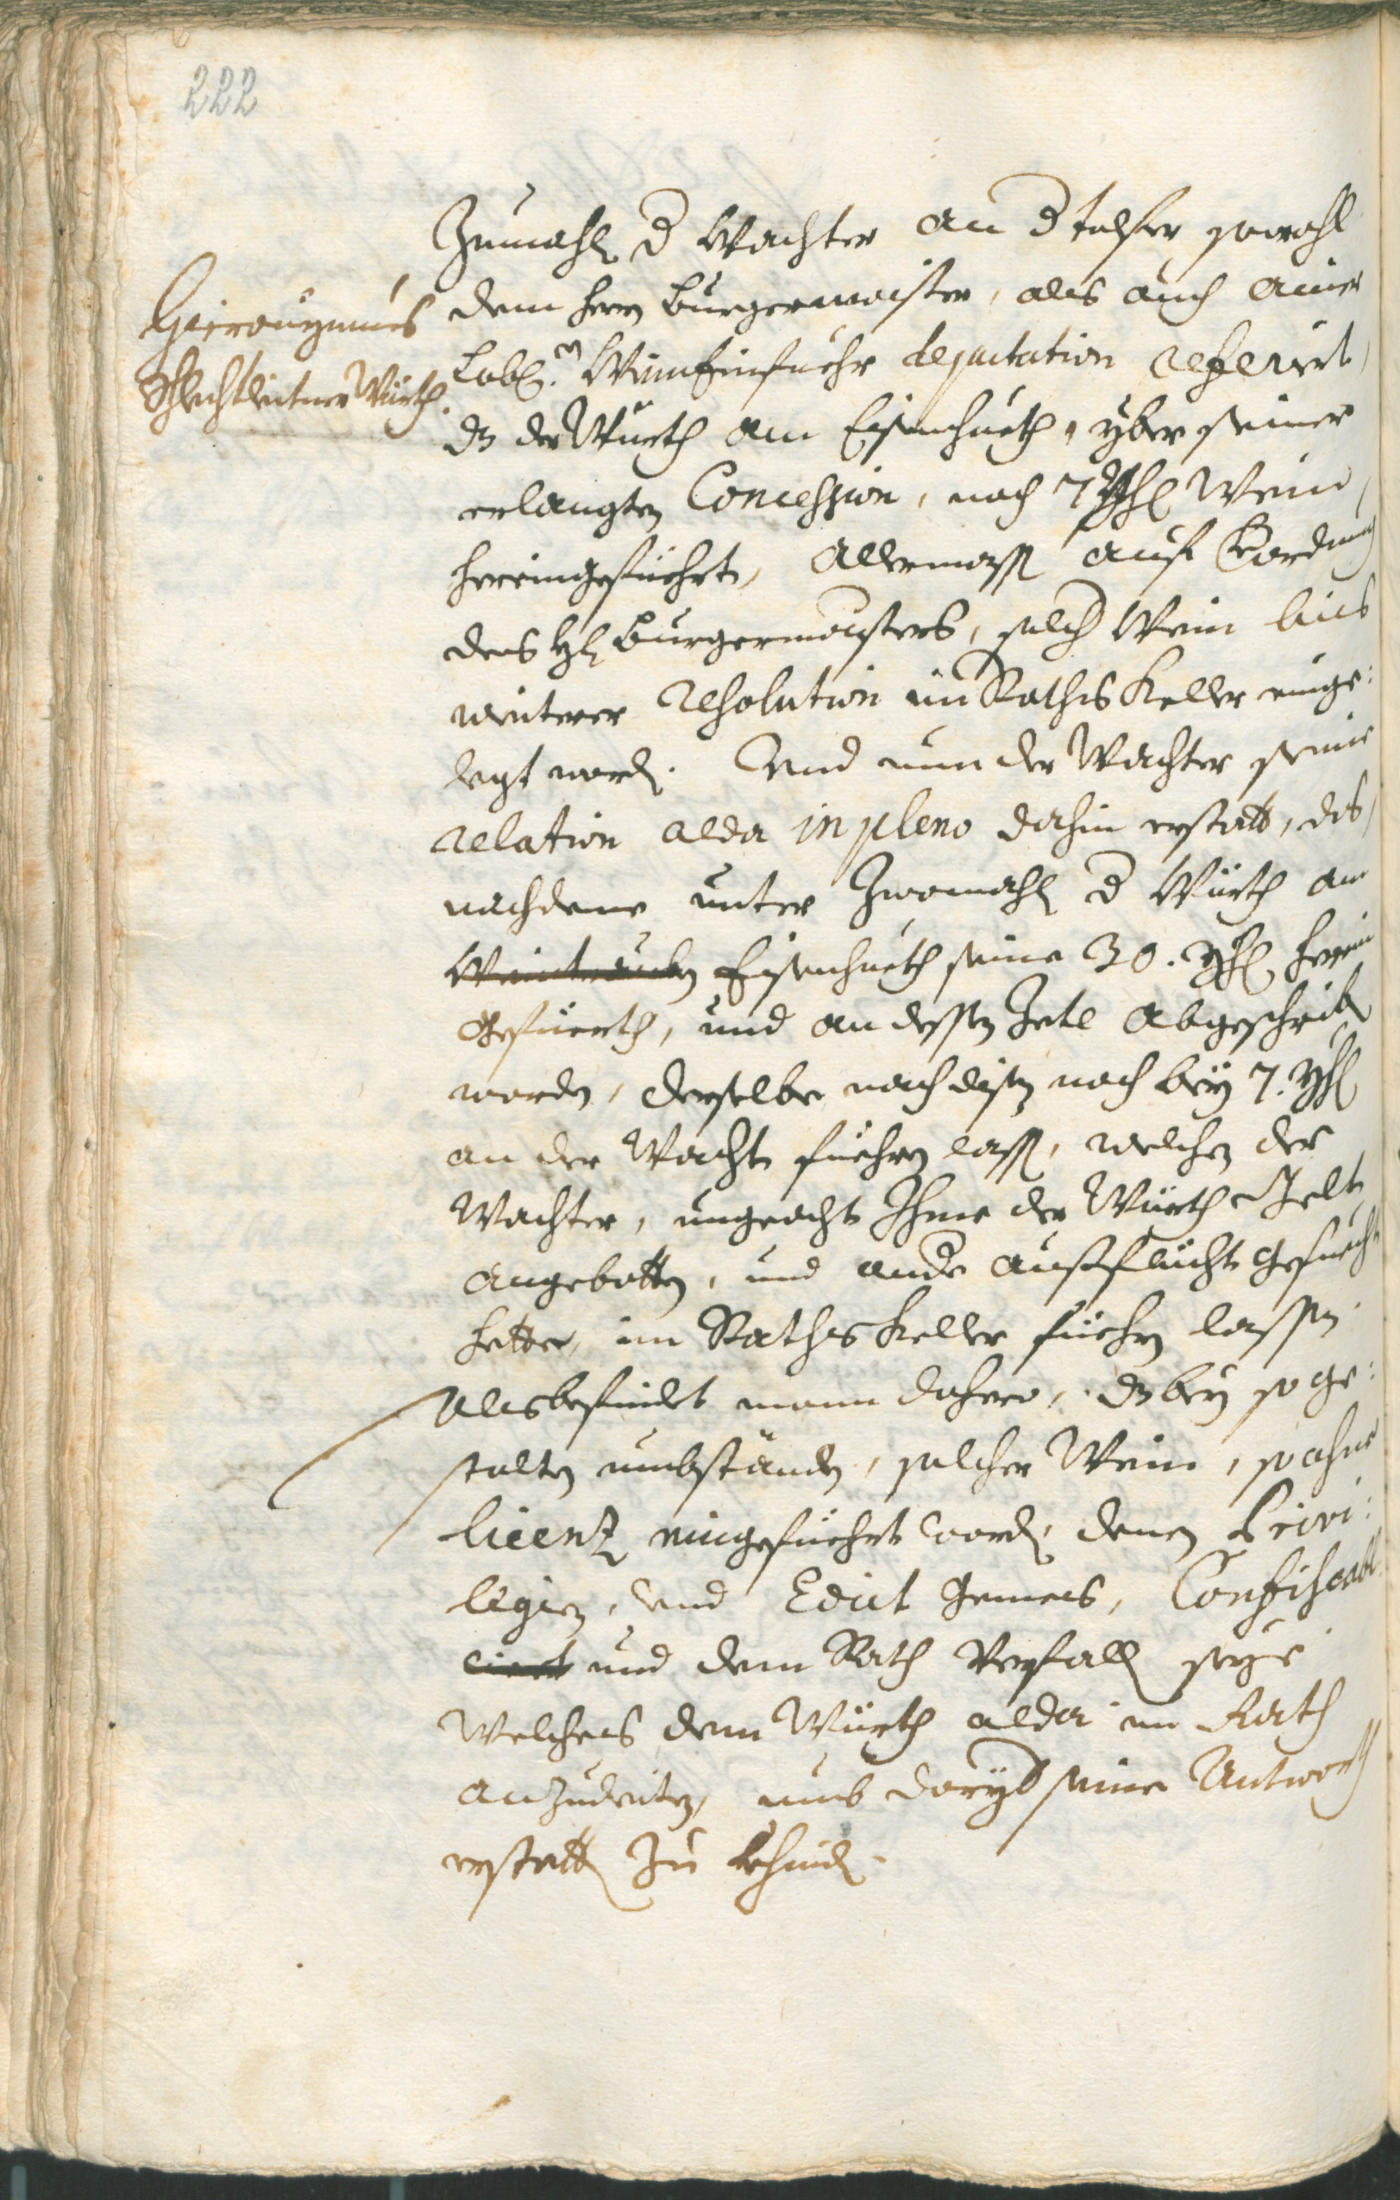 222
Hieronymus
Schlechtleutner Würth.
Zumahl d Wachter an d talfer sowohl
dem herrn Burgermaister, als auch ainer
Lobl. Weineinfuehr deputation referiert,
dz der Würth am Eisenhueth, yber seiner
erlangten Concession, noch 7 Yhrn Wein
hereingefüehrt, Allermassen auf Verordnung
des Hl Burgermaisters, solch Wein bis
weiterer resolution im Rathskeller einge:
legt worden. Und nun der Wachter seine
relation alda in pleno dahin erstatt, das,
nachdeme unter Zwomahl d Würth am
Weintrauben Eisenhueth seine 30. Yhrn herein
gefüerth, und an dessen Zetl abgeschriben
worden, derselbe nach disen noch bey 7. Yhrn
an der Wacht füehren lassen, welchen der
Wachter, ungeacht Ihme der Würth Gelt
angebotten, und ande ausflücht gesuecht
hette, im Rathskeller füehren lassen
Als befindet mann dahero, dz bey so ge:
stalten umbständen, solcher Wein, so ohne
licenz eingefüehrt worden, denen Privi:
legien, und Edict gemess, Confiscabl
ciert und dem Rath Verfallen seye
Welches dem Würth alda im Rath
anzudeiten, umb daryb seine Antworth
erstatten zu khinden.